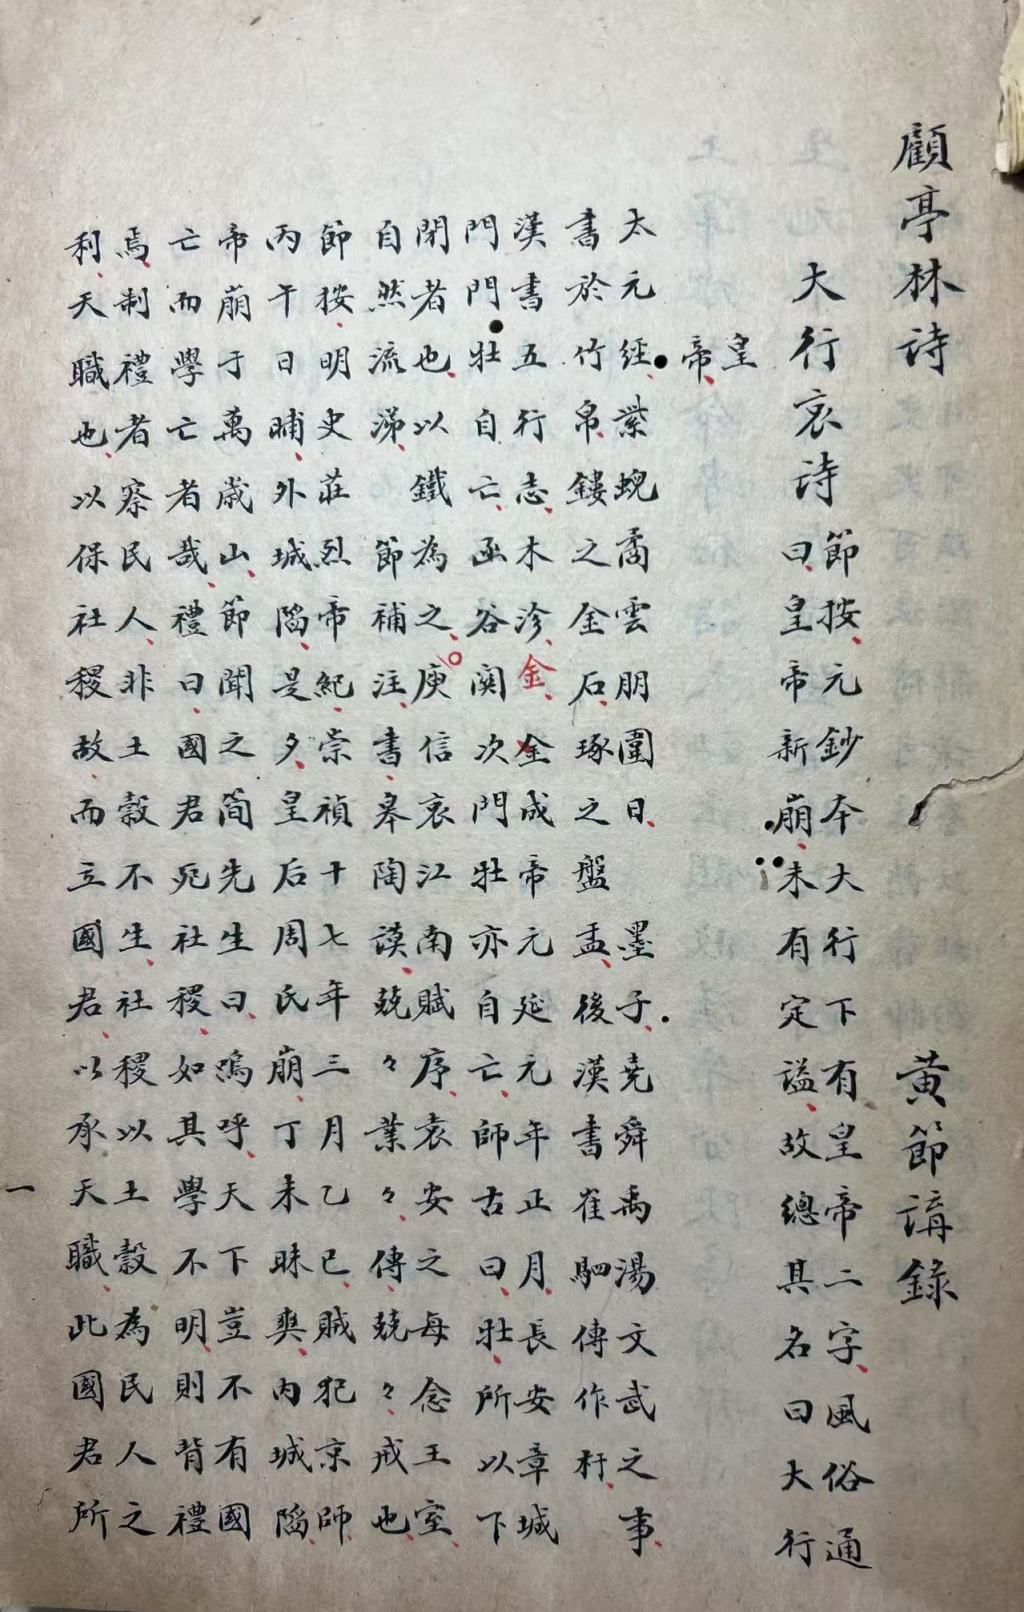 顧亭林詩　黃節講錄
大行哀詩
節按、元鈔本大行下有皇帝二字、風俗通
曰、皇帝新崩、未有定謚、故總其名曰大行
皇
帝、
太元經、紫蜺矞雲朋圍日、　墨子、堯舜禹湯文武之事、
書於竹帛、鏤之金石、琢之盤盂、後漢書崔駰傳作杅、
漢書五行志、木沴、金、金成帝元延元年正月、長安章城
門門牡自亡、函谷関次門牡亦自亡、師古曰、牡、所以下
閉者也、以鐵為之、庾信哀江南賦序、袁安之每念王室、
自然流涕、　節補注、書、皋陶謨、兢々業々、傳、兢々、戒也、
節按、明史莊烈帝紀、崇禎十七年三月乙巳、賊犯京師、
丙午日晡、外城陷、是夕、皇后周氏崩、丁未昧爽、內城陷、
帝崩于萬歲山、節聞之简先生曰、嗚呼、天下豈不有國
亡而學亡者哉、禮曰、國君死社稷、如其學不明、則背禮
焉、制禮者察民人、非土穀不生、社稷以土穀為民人之
利、天職也、以保社稷故、而立國君、以承天職、此國君所
一